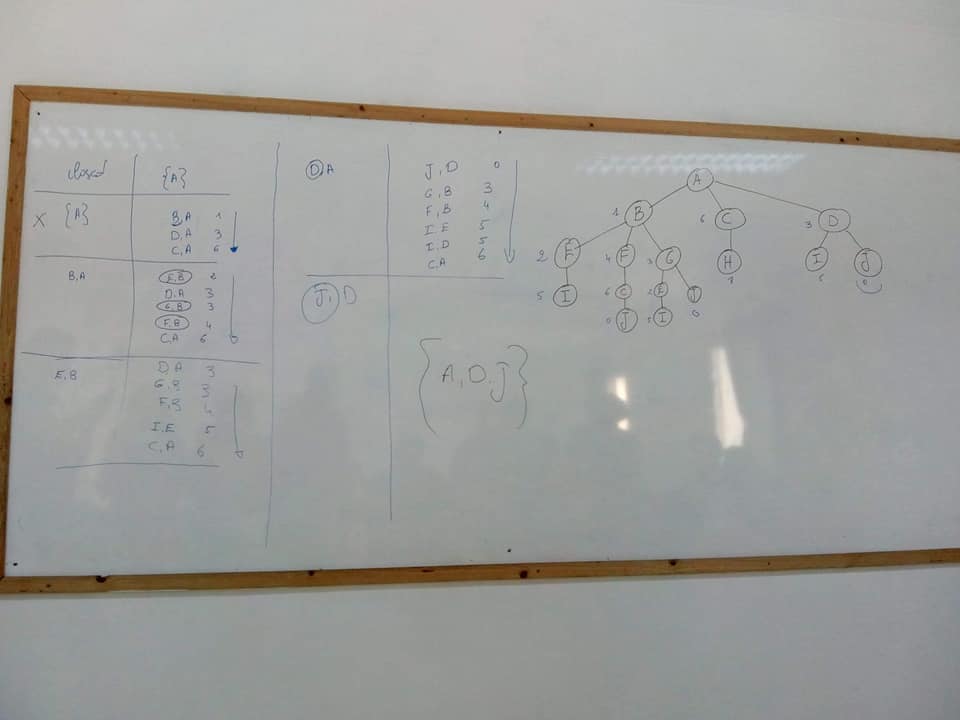 closed {A}
X {A}
B,A 1
D,A 3
C,A 6
B,A
E,B 2
D,A 3
G,B 3
F,B 4
C,A 6
E,B
D,A 3
G,B 3
F,B 4
I,E 5
C,A 6
D A
J,D 0
G,B 3
F,B 4
I,E 5
I,D 5
C,A 6
J,D
{A,D,J}
A
1 B 6 C 3 D
2 E 4 F 3 G H I J
5 I 6 C 2 E J
0 J 5 I 0